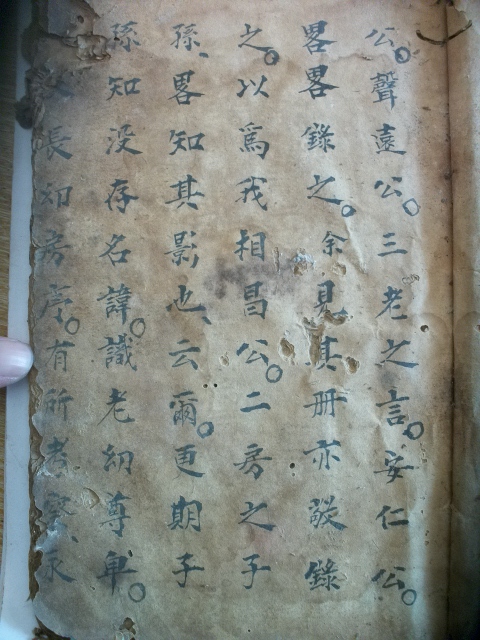 公。聲遠公。三老之言。安仁公。
畧畧錄之。余見其册亦敬錄
之。以爲我相昌公。二房之子
孫、畧知其影也、云爾。更期子
孫知没存名諱。識老幼尊卑。
長幼房序。有所考察、永